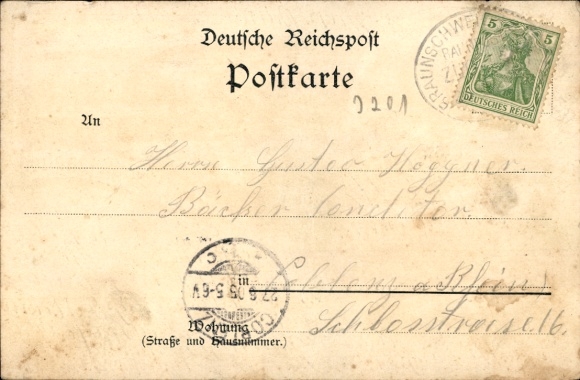 Deutsche Reichspost
Postkarte
5 5
DEUTSCHES REICH
BRAUNSCHWE
3201
An
Herrn Gustav Höggner.
Bäcker Conditor.
in Coblenz a Rhein
27.6.05.5-6V
Wohnung Schlossstrasse 16.
(Straße und Hausnummer.)